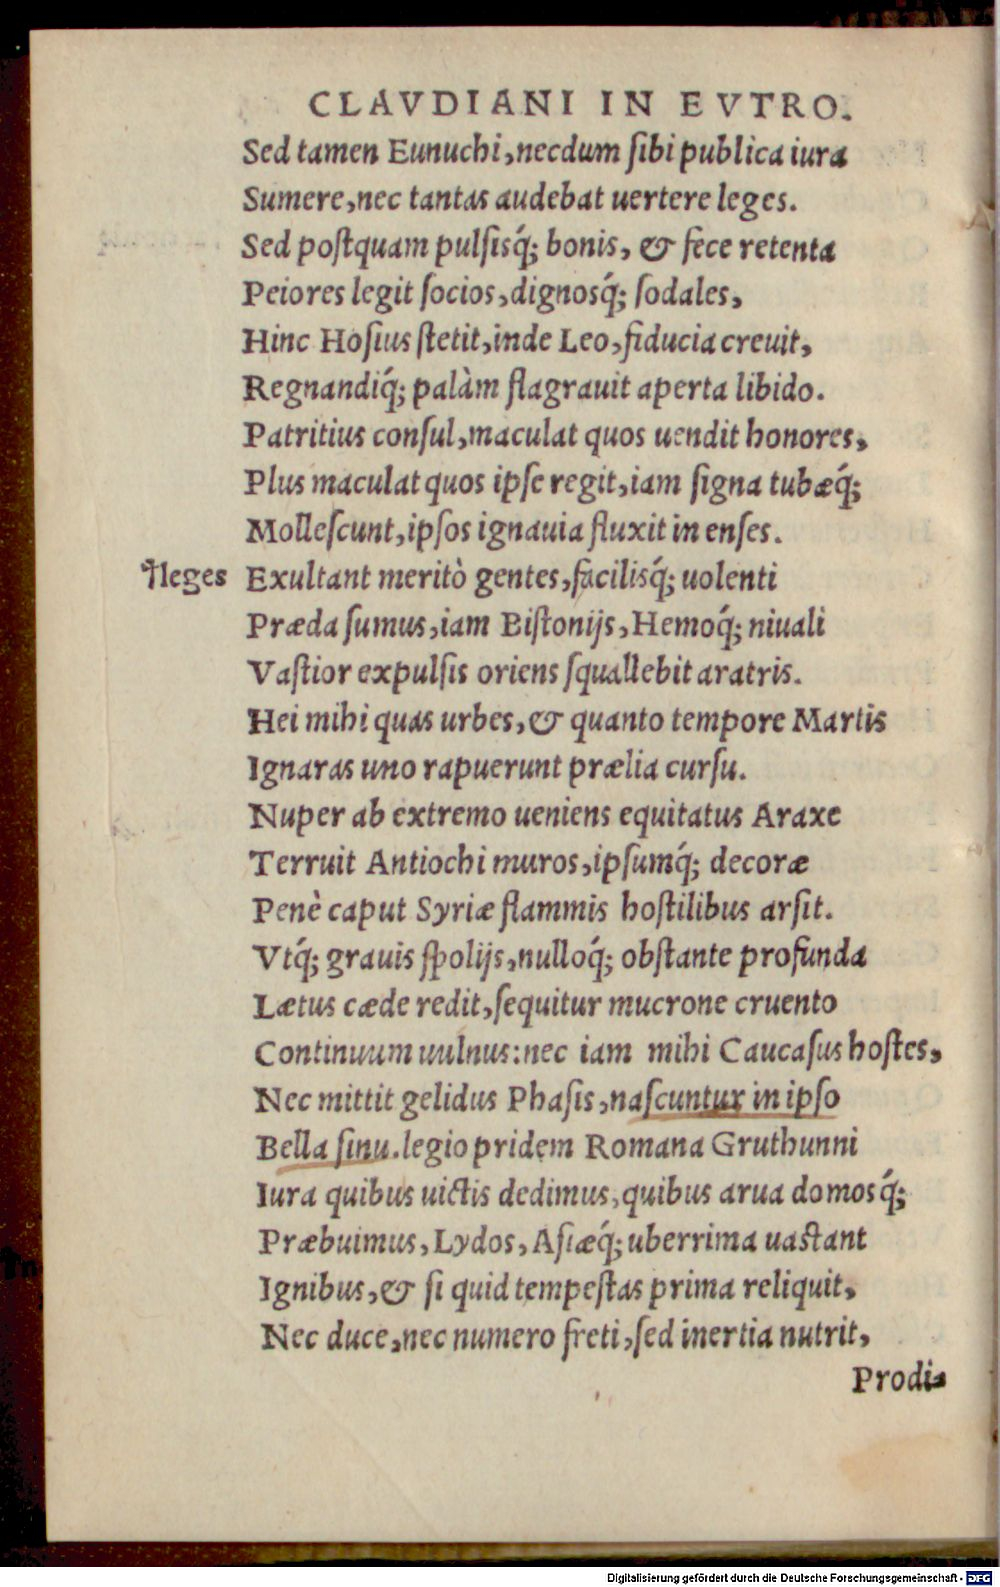 CLAVDIANI IN EVTRO.
Sed tamen Eunuchi, necdum ſibi publica iura
Sumere, nec tantas audebat uertere leges.
Sed poſtquam pulſisq́; bonis, & fece retenta
Peiores legit ſocios, dignosq́; ſodales,
Hinc Hoſius ſtetit, inde Leo, fiducia creuit,
Regnandiq́; palàm flagrauit aperta libido.
Patritius conſul, maculat quos uendit honores,
Plus maculat quos ipſe regit, iam ſigna tubæq́;
Molleſcunt, ipſos ignauia fluxit in enſes.
leges Exultant meritò gentes, facilisq́; uolenti
Præda ſumus, iam Biſtonijs, Hemoq́; niuali
Vaſtior expulſis oriens ſquallebit aratris.
Hei mihi quas urbes, & quanto tempore Martis
Ignaras uno rapuerunt prælia curſu.
Nuper ab extremo ueniens equitatus Araxe
Terruit Antiochi muros, ipſumq́; decoræ
Penè caput Syriæ flammis hoſtilibus arſit.
Vtq́; grauis ſpolijs, nulloq́; obſtante profunda
Lætus cæde redit, ſequitur mucrone cruento
Continuum uulnus: nec iam mihi Caucaſus hoſtes,
Nec mittit gelidus Phaſis, naſcuntur in ipſo
Bella ſinu. legio pridem Romana Gruthunni
Iura quibus uictis dedimus, quibus arua domosq́;
Præbuimus, Lydos, Aſiæq́; uberrima uaſtant
Ignibus, & ſi quid tempeſtas prima reliquit,
Nec duce, nec numero freti, ſed inertia nutrit,
Prodi-
Digitalisierung gefördert durch die Deutsche Forschungsgemeinschaft - DFG